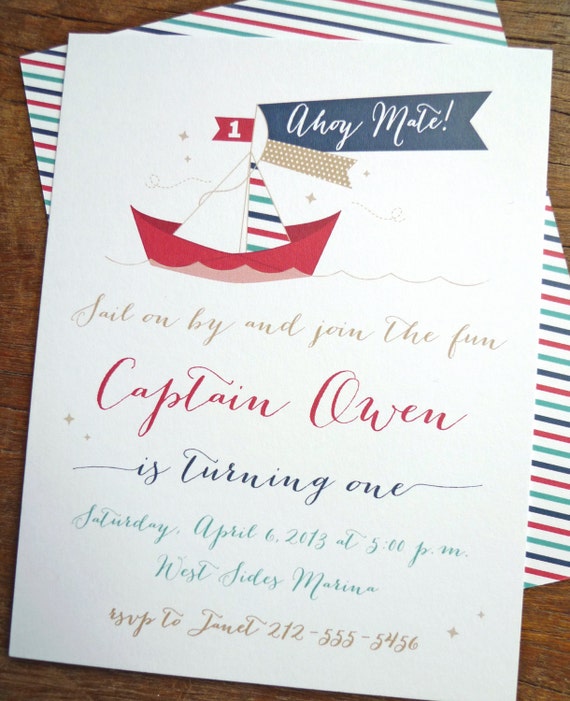 1
Ahoy Mate!
Sail on by and join the fun
Captain Owen
is turning one
Saturday, April 6, 2013 at 5:00 p.m.
West Sides Marina
rsvp to Janet 212-555-5456